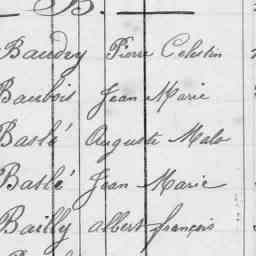 B.
Baudey Pierre Celestin
Baubois Jean Marie
Baslé Auguste Malo
Baslé Jean Marie
Bailly albert françois